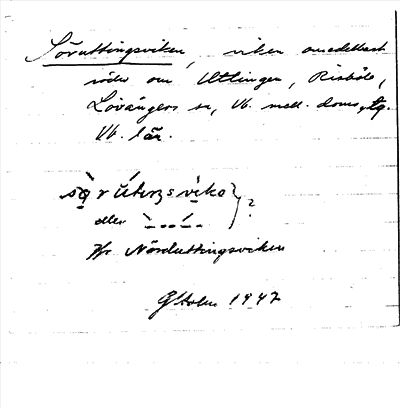 Söruttingsviken, viken omedelbart
söder om Uttingen, Risböle,
Lövångers sn, Vb. mell. doms. tg.
Vb. län.
eller
Jfr Nörduttingsviken
GHolm 1947